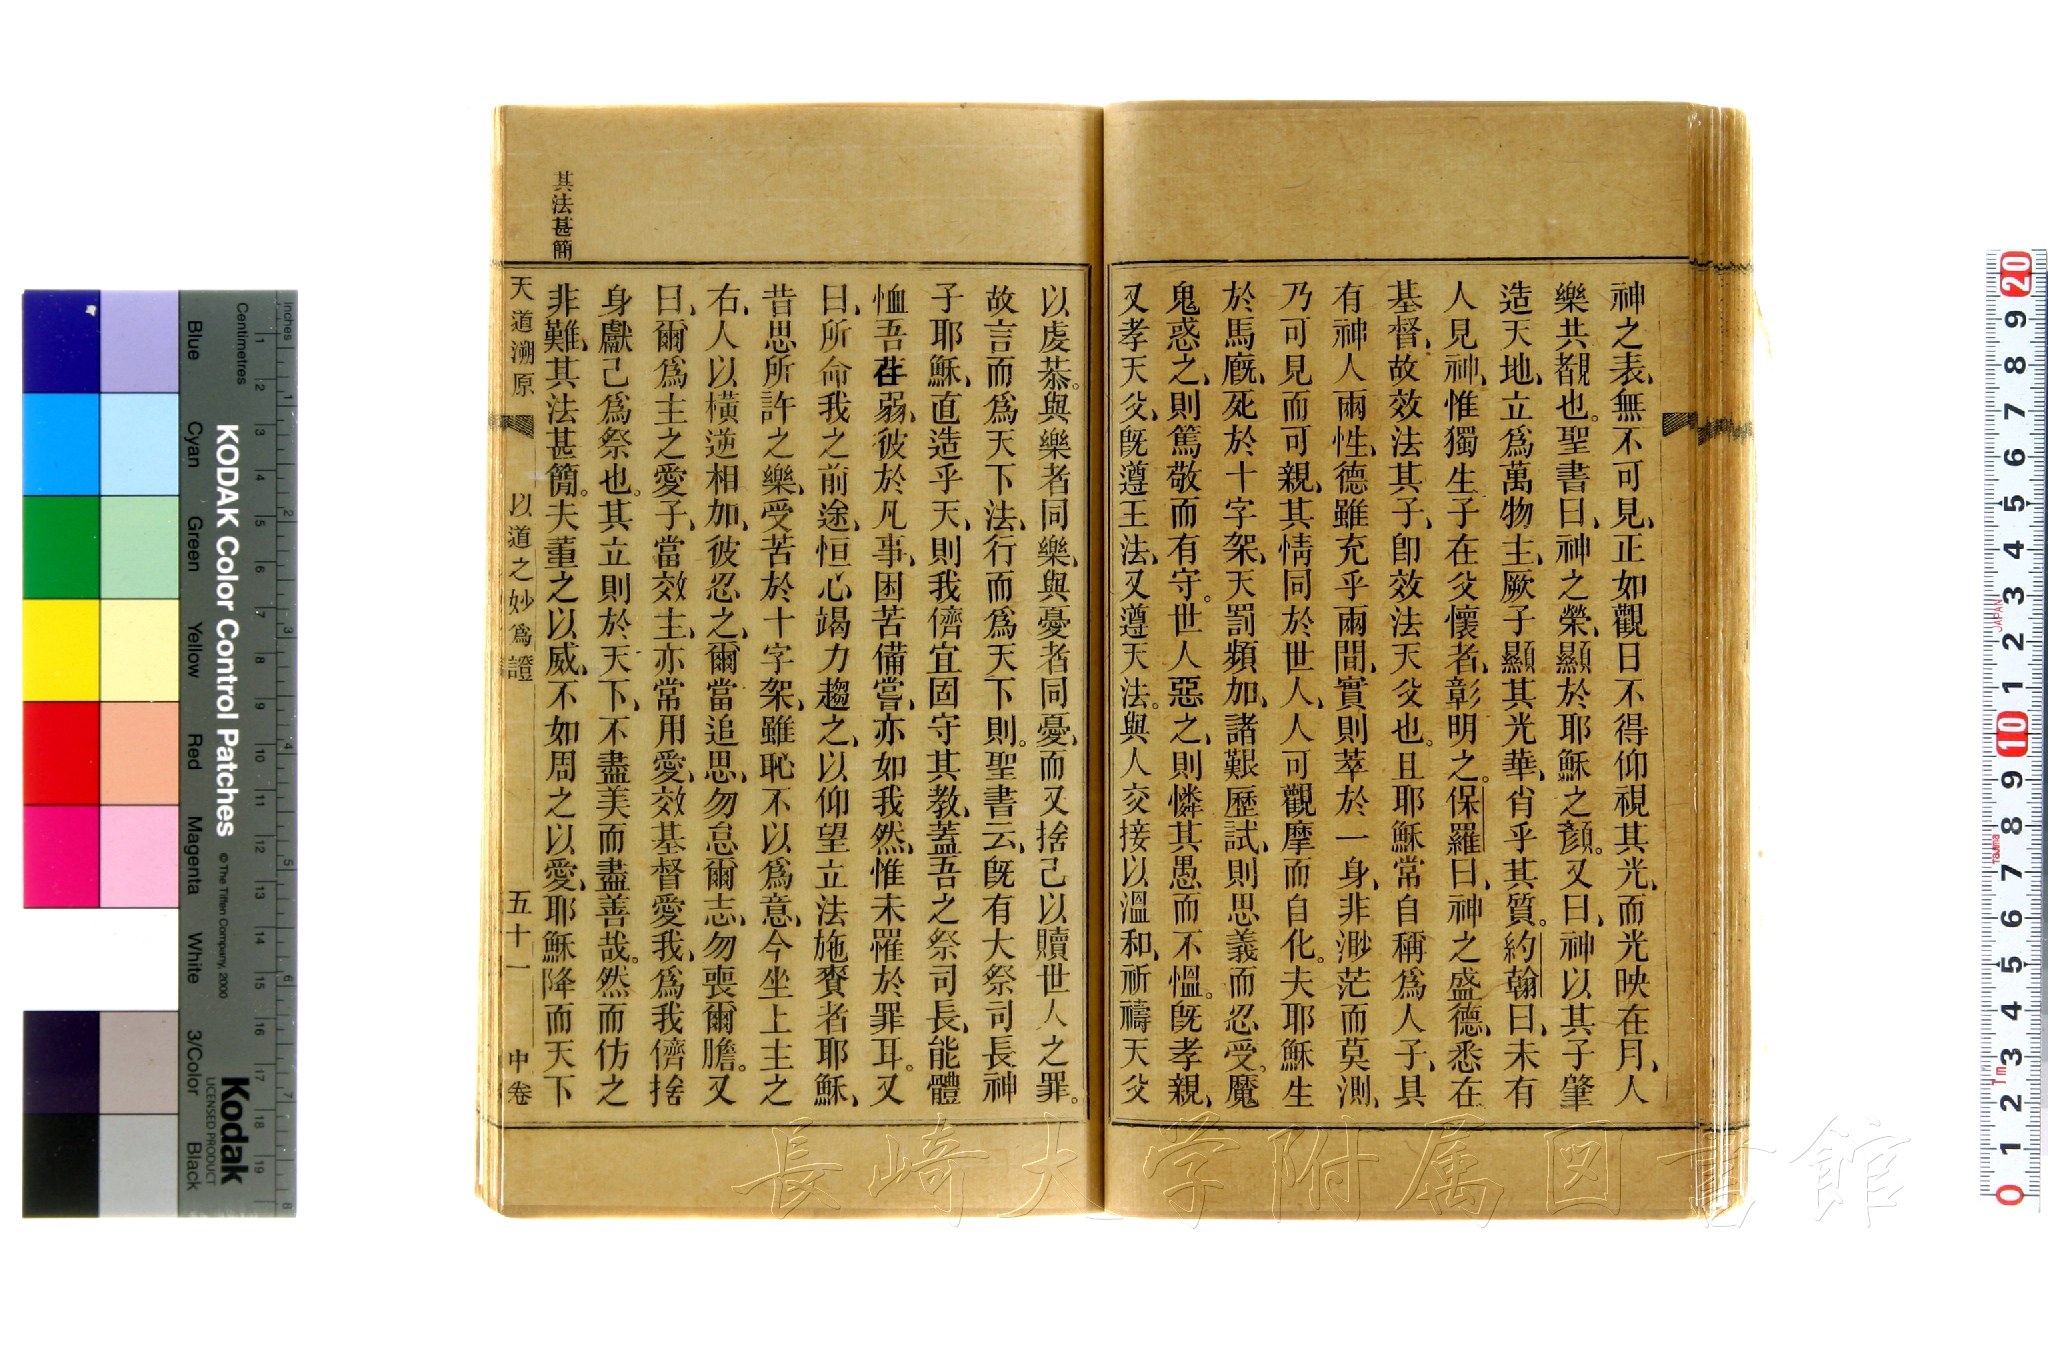 神之表、無不可見、正如觀日不得仰視其光、而光映在月、人
樂共覩也。聖書曰、神之榮、顯於耶穌之顏。又曰、神以其子肇
造天地、立爲萬物主、厥子顯其光華、肖乎其質。約翰曰、未有
人見神、惟獨生子在父懷者、彰明之。保羅曰、神之盛德、悉在
基督、故效法其子、卽效法天父也。且耶穌常自稱爲人子、具
有神人兩性、德雖充乎兩間、實則萃於一身、非渺茫而莫測、
乃可見而可親、其情同於世人、人可觀摩而自化。夫耶穌生
於馬廐、死於十字架、天罰頻加、諸艱歷試、則思義而忍受。魔
鬼惑之、則篤敬而有守。世人惡之、則憐其愚而不慍。旣孝親、
又孝天父、旣遵王法、又遵天法。與人交接以溫和、祈禱天父
以虔恭。與樂者同樂、與憂者同憂、而又捨己以贖世人之罪。
故言而爲天下法、行而爲天下則。聖書云、旣有大祭司長神
子耶穌、直造乎天、則我儕宜固守其教、蓋吾之祭司長、能體
恤吾荏弱、彼於凡事、困苦備嘗、亦如我然、惟未罹於罪耳。又
曰、所命我之前途、恒心竭力趨之、以仰望立法施賚者耶穌、
昔思所許之樂、受苦於十字架、雖恥不以爲意、今坐上主之
右、人以橫逆相加、彼忍之、爾當追思、勿怠爾志、勿喪爾膽。又
曰、爾爲主之愛子、當效主、亦常用愛、效基督愛我、爲我儕捨
身獻己爲祭也。其立則於天下、不盡美而盡善哉。然而仿之
非難、其法甚簡。夫董之以威、不如周之以愛、耶穌降而天下
其法甚簡
天道溯原
以道之妙爲證
五十一
中卷
KODAK Color Control Patches
© The Tiffen Company, 2000
Kodak
LICENSED PRODUCT
Inches
Centimetres
Blue
Cyan
Green
Yellow
Red
Magenta
White
3/Color
Black
長崎大学附属図書館